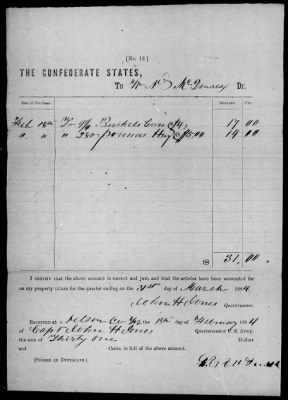 [No. 12.]
THE CONFEDERATE STATES,
To Wm D McTensey Dr.
Date of Purchase. Dollars. Cts.
Feb. 18th To Bushels Corn 17 00
" " " 280 pounds Hay @ 5.00 14 00
$ 31,00
I certify that the above account is correct and just, and that the articles have been accounted for
on my property return for the quarter ending on the 31st day of March 1864
John H Jones
Quartermaster.
Received at Nelson Co Va, the 18th day of February 1864
of Capt John H Jones Quartermaster C. S. Army,
the sum of Thirty One Dollars
and Cents, in full of the above account.
(Signed in Duplicate.)